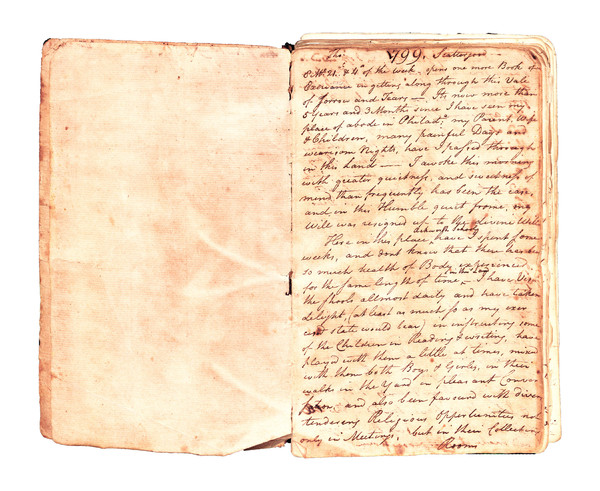 The 799. Scattergood
8 Mo. 21. & 4 of the week. opens one more Book of
Exercise in getting along through this Vale
of Sorrow and Tears — Its now more than
5 Years and 3 Months since I have seen my
place of abode in Philada. my Parent, Wife
& Children, many painful Days and
wearisom Nights, have I passed through
in this land — I awoke this morning
with greater quickness, and sweetness of
mind than frequently has been the case
and in this Humble quiet frame, my
Will was resigned up to the divine Will
Here in this place, Ackworth School have I spent some
weeks, and dont know that there has been
so much health of Body experienced
for the same length of time, in this Land — I have
the Schools allmost daily and have taken
delight, (at least as much so as my exer
cised state would bear) in instructing some
of the Children in Reading & writing, have
played with them a little at times, mixed
with them both Boys & Girls, in their
walks in the Yard in pleasant Conver
sation, and also been favoured with divers
tendering Religious Opportunities not
only in Meetings, but in their Collecting
Rooms